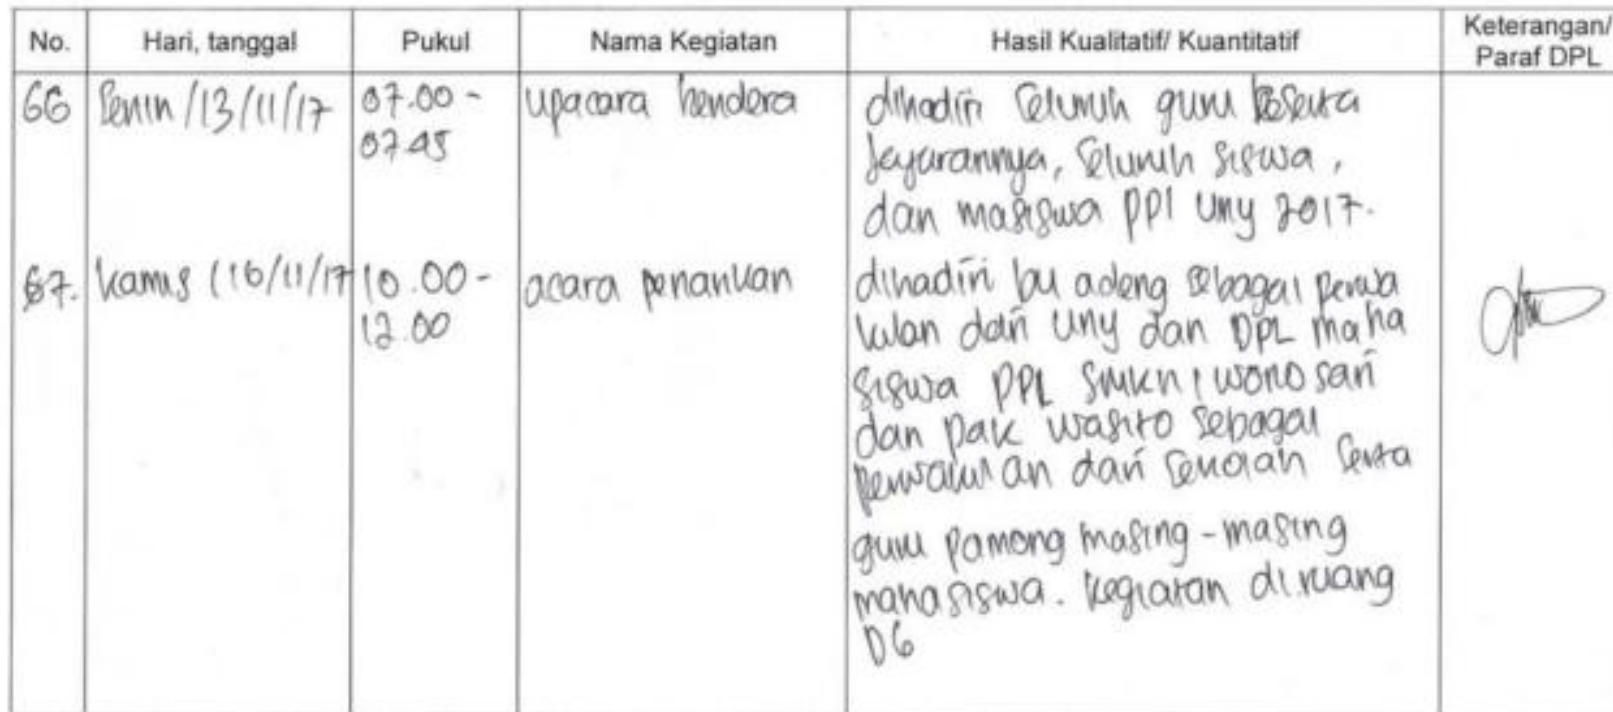 No. Hari, tanggal Pukul Nama Kegiatan Hasil Kualitatif/ Kuantitatif Keterangan/ Paraf DPL
66 Senin /13/11/17 07.00 - upacara bendera dihadiri seluruh guru beserta
07.45 jajarannya, seluruh siswa,
dan masiswa PPl Uny 2017.
67. kamis (16/11/17 10.00 - acara penarikan dihadiri bu adeng sebagai perwa
12.00 kilan dari Uny dan DPL maha
siswa PPL SMKN 1 wonosari
dan pak wasito sebagai
perwakilan dari sekolah serta
guru pamong masing-masing
mahasiswa. kegiatan di.ruang
D6